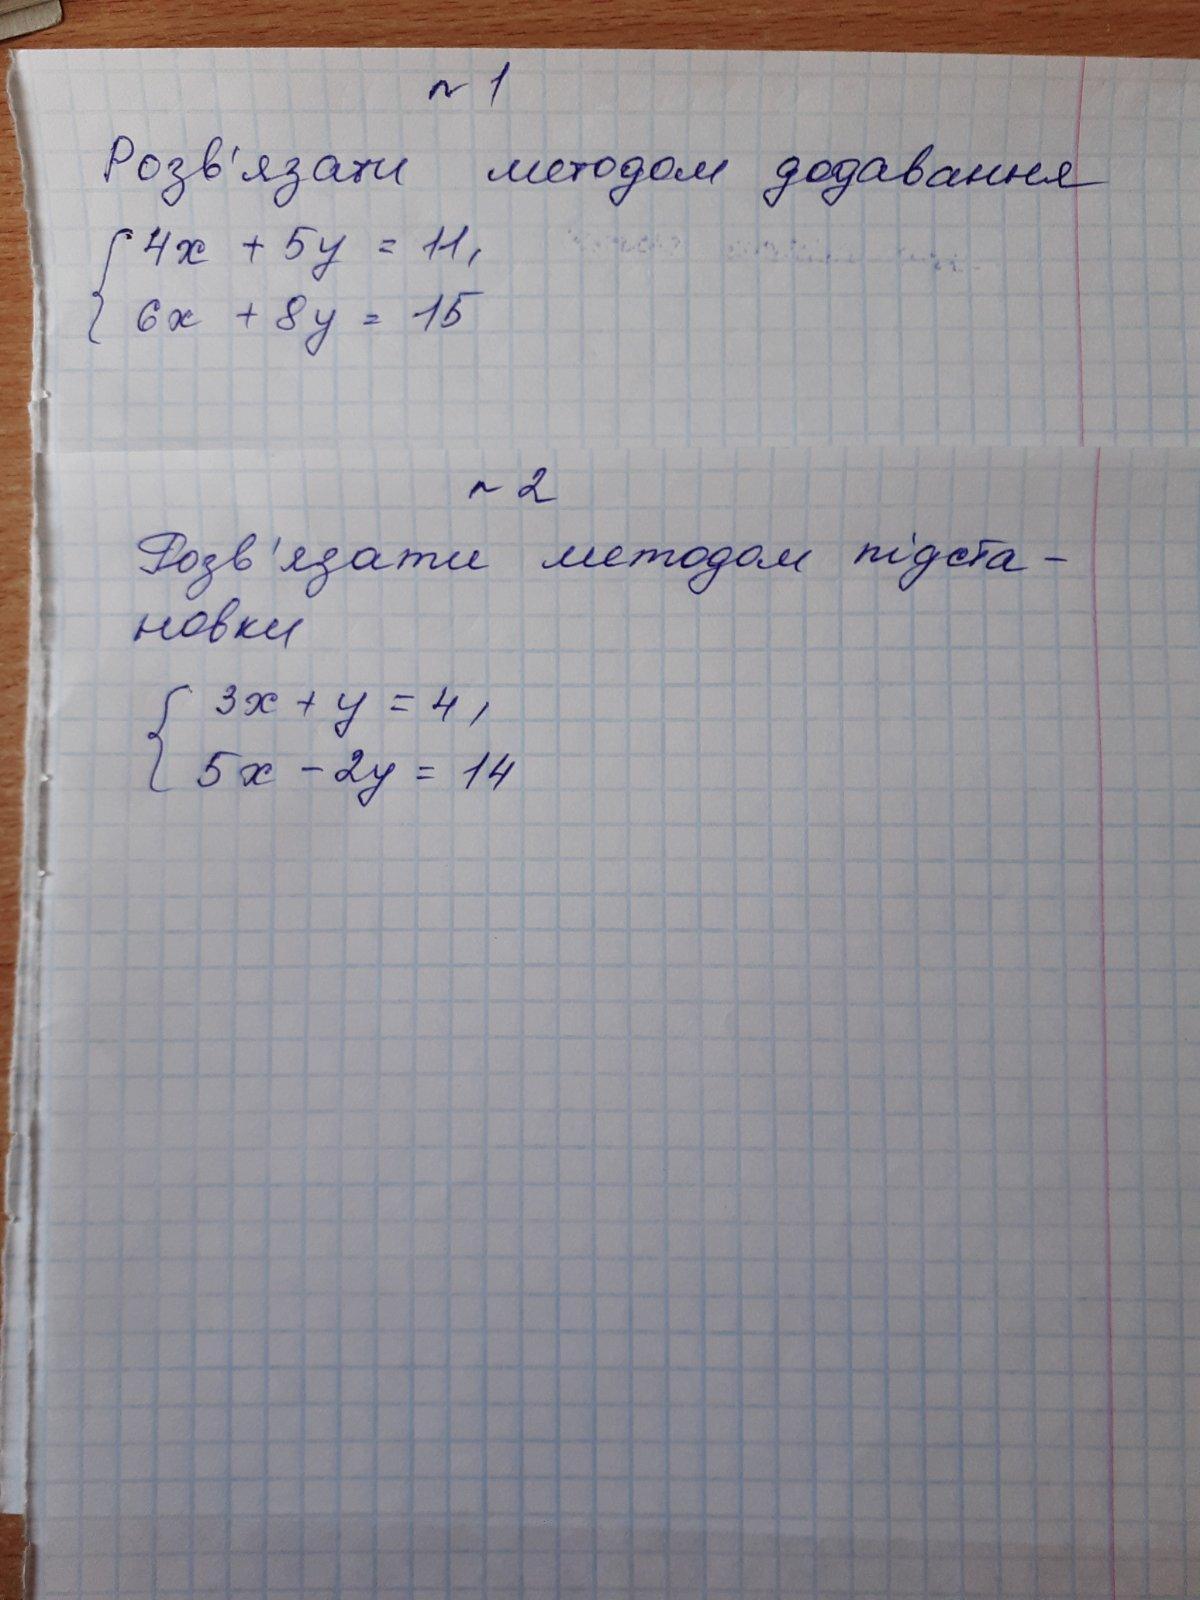 № 1
Розв'язати методом додавання
4x + 5y = 11,
6x + 8y = 15
№ 2
Розв'язати методом підста-
новки
3x + y = 4,
5x - 2y = 14